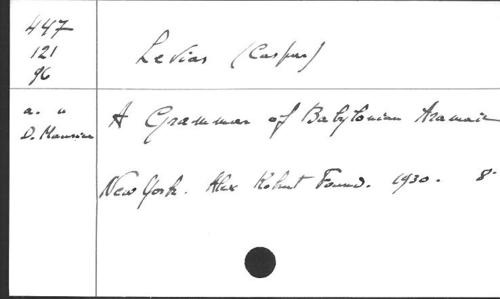 447
121
96
Levias (Caspar)
a. "
D. Maurice
A Grammar of Babylonian Aramaic
New York. Alex Kohut Found. 1930. 8°